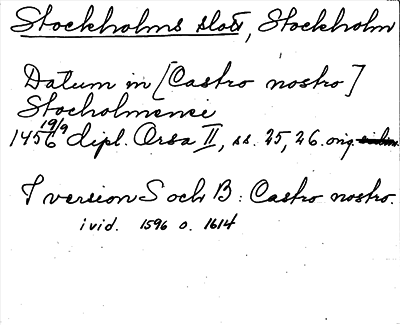 Stockholms slott, Stockholm
Datum in [Castro nostro]
Stocholmensi
1456 19/9 dipl. Orsa II, ss. 25, 26. orig.
I version S och B: Castro nostro.
ivid. 1596 o. 1614